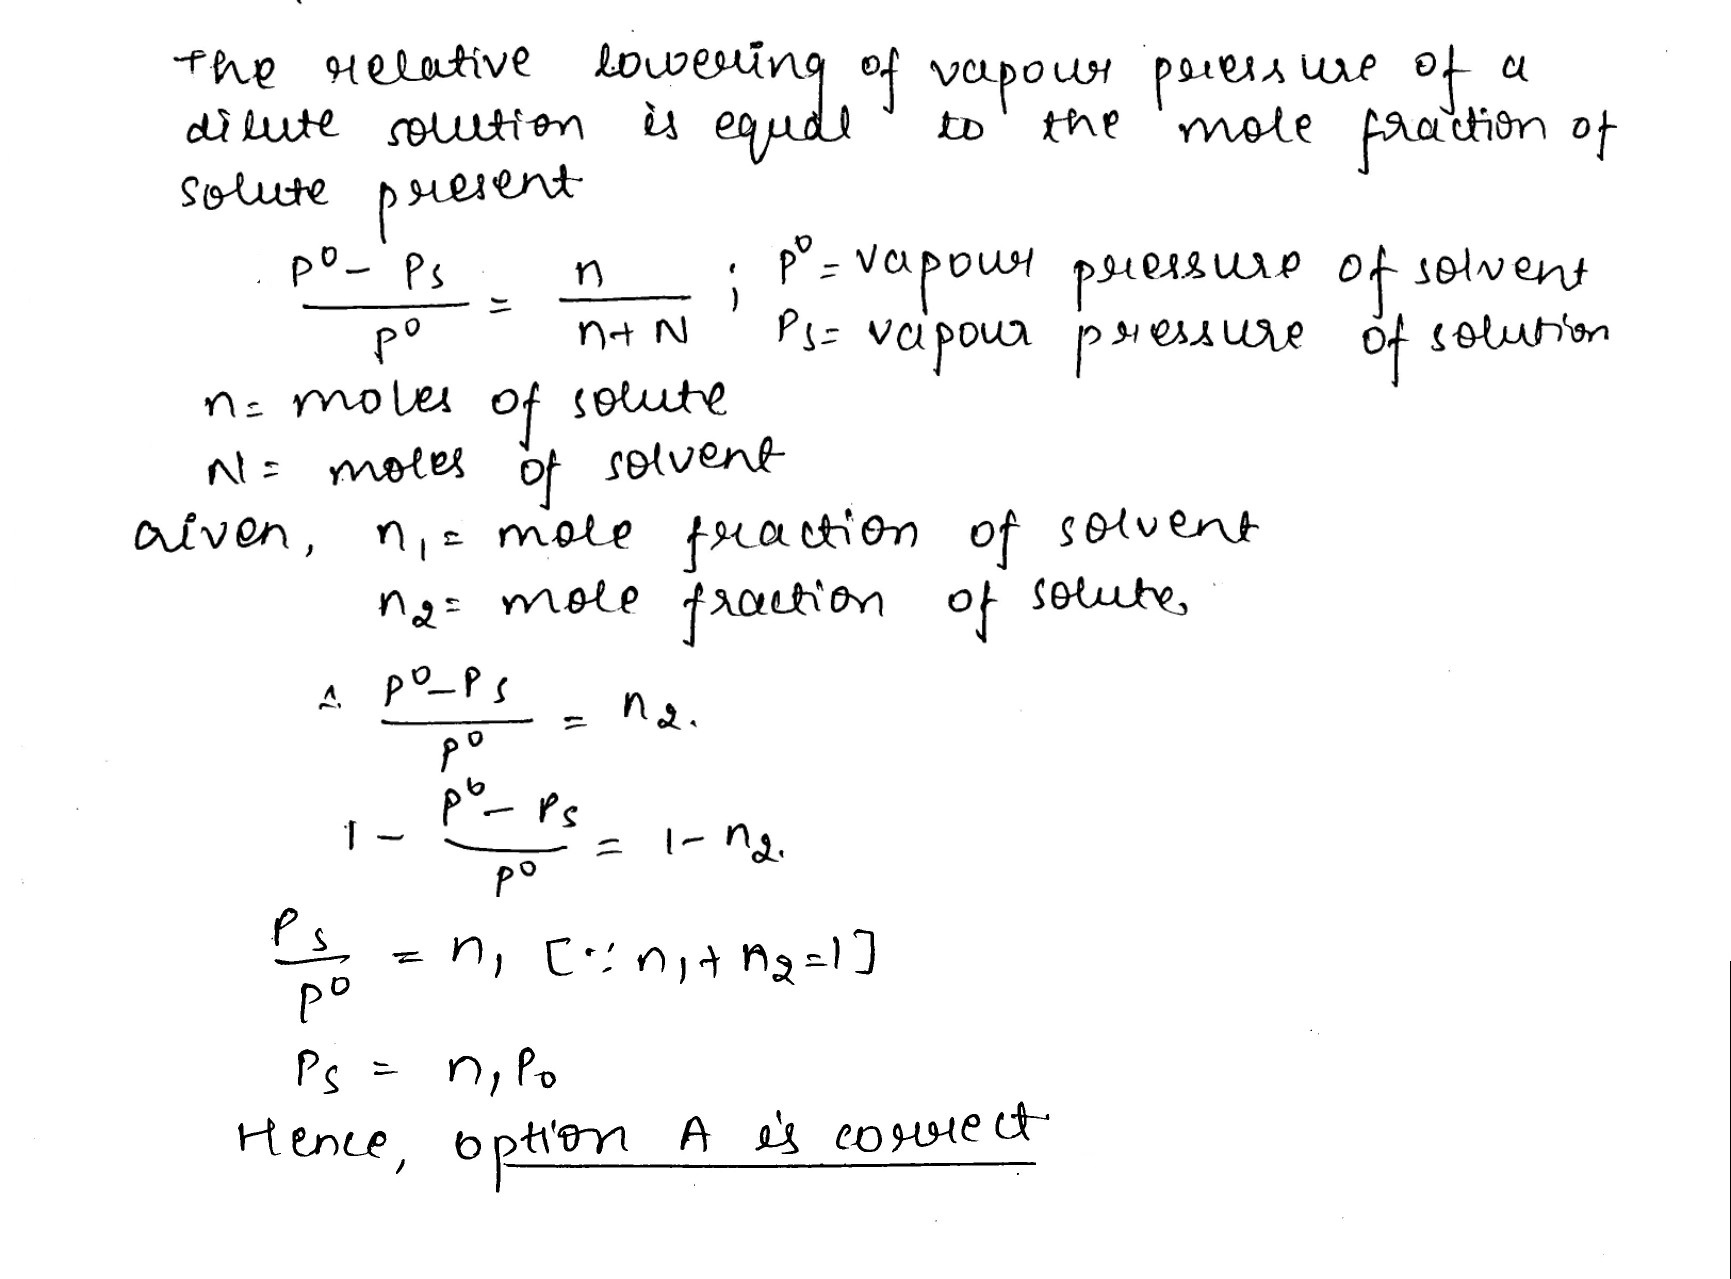 The relative lowering of vapour pressure of a
dilute solution is equal to the mole fraction of
solute present
P⁰ - Ps / P⁰ = n / n + N ; P⁰ = vapour pressure of solvent
Ps = vapour pressure of solution
n = moles of solute
N = moles of solvent
Given, n₁ = mole fraction of solvent
n₂ = mole fraction of solute,
∴ P⁰ - Ps / P⁰ = n₂.
1 - P⁰ - Ps / P⁰ = 1 - n₂.
Ps / P⁰ = n₁ [∵ n₁ + n₂ = 1]
Ps = n₁ P₀
Hence, option A is correct